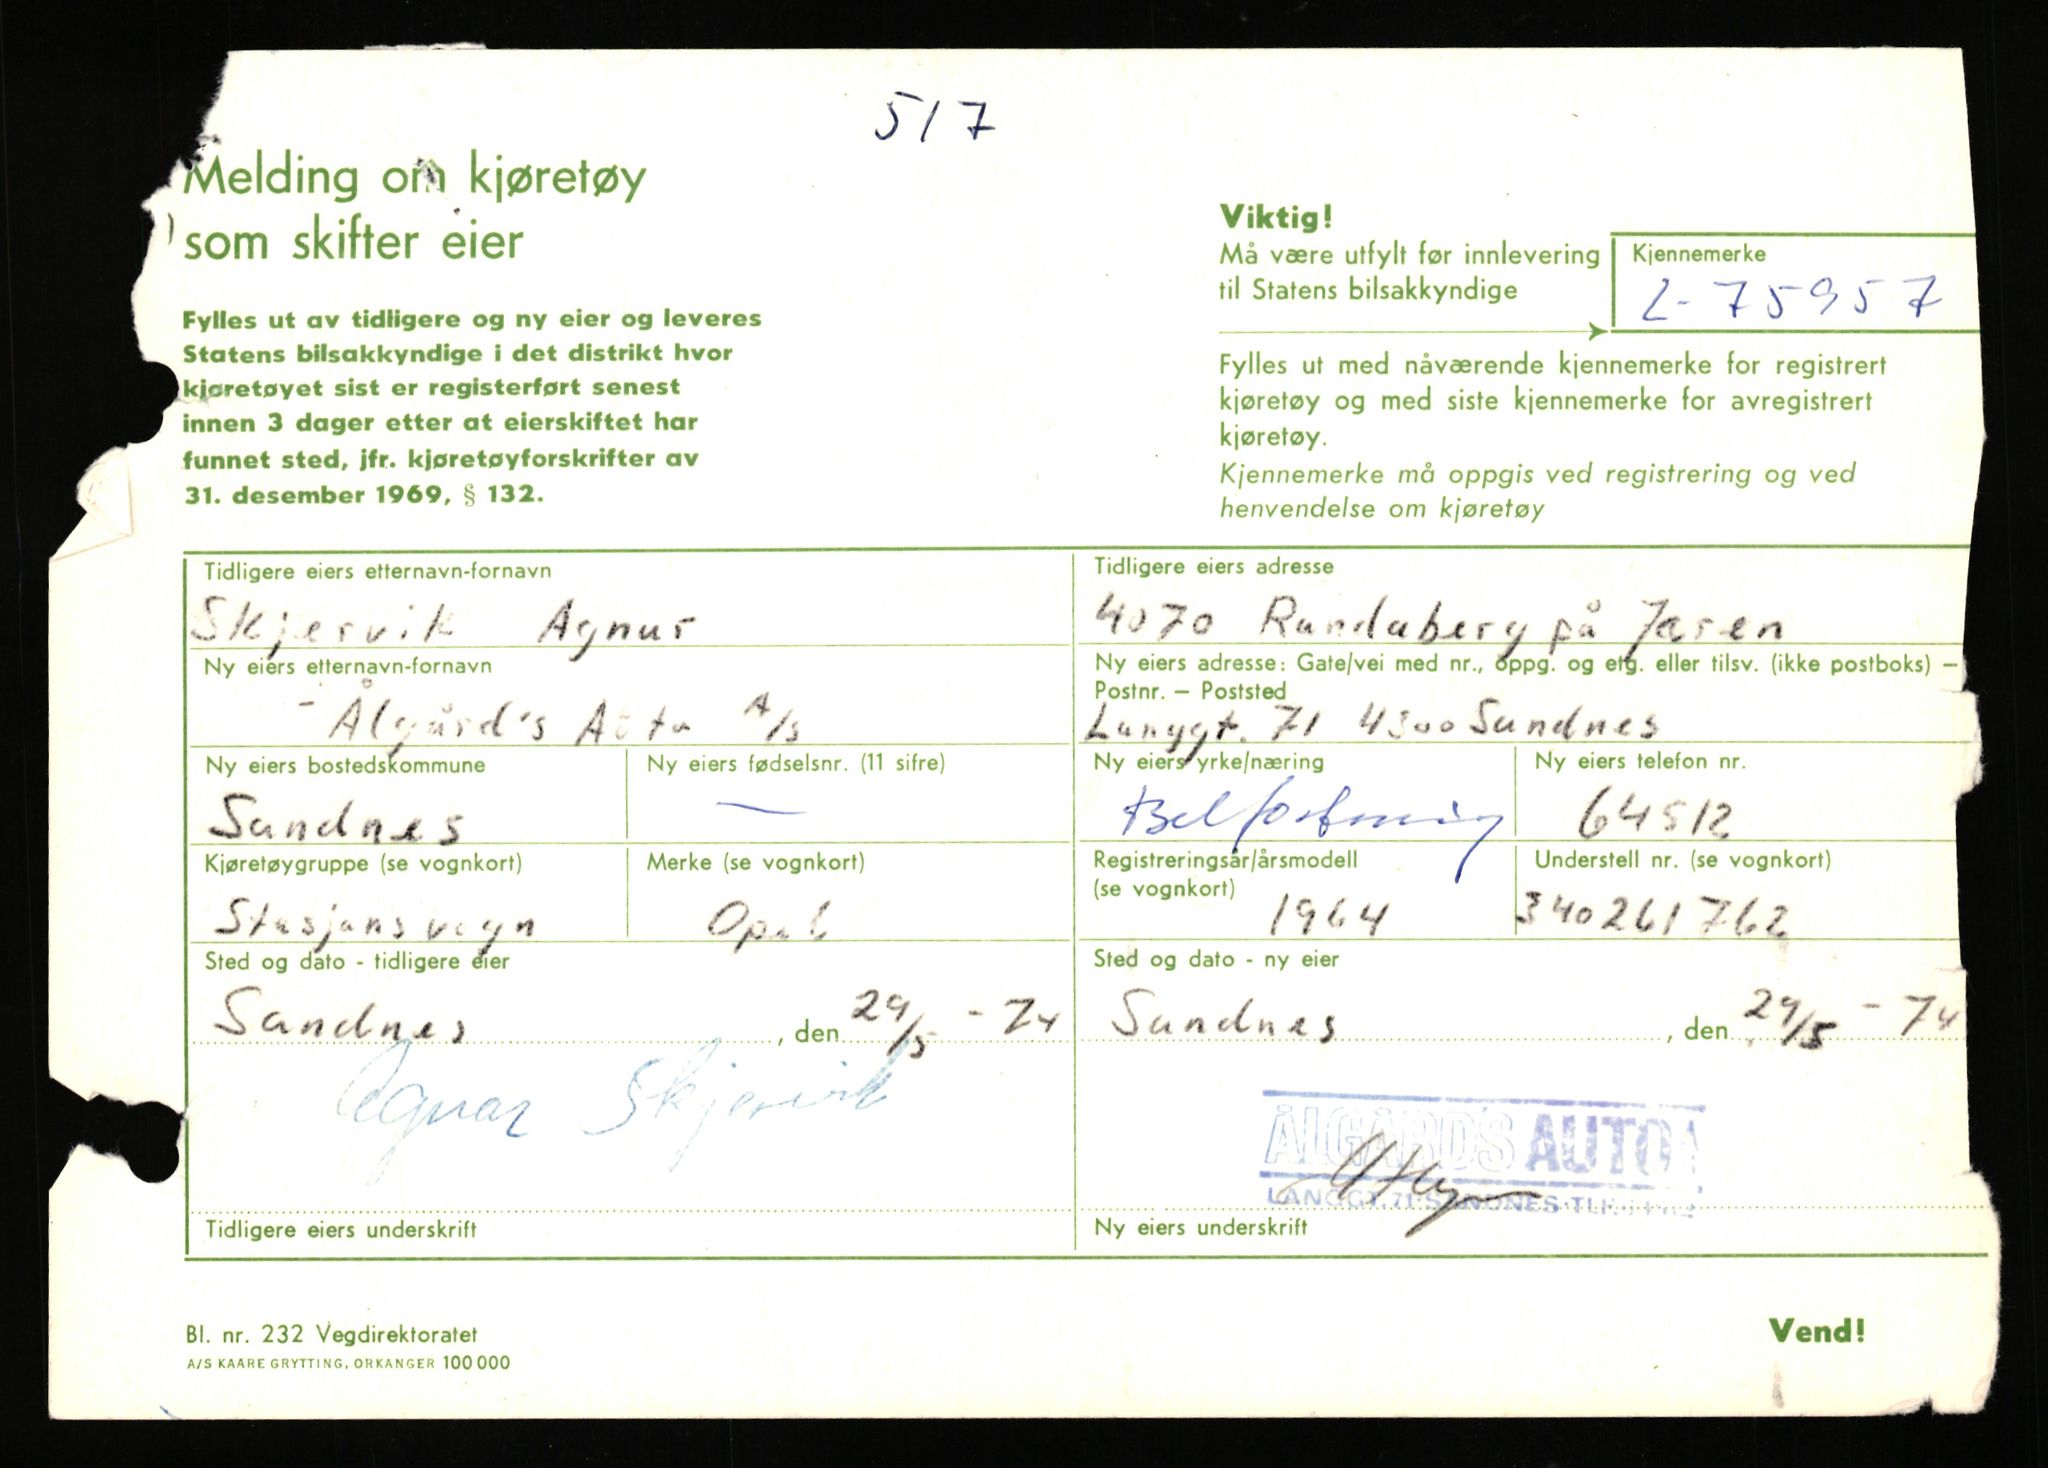 517
Melding om kjøretøy
som skifter eier
Fylles ut av tidligere og ny eier og leveres
Statens bilsakkyndige i det distrikt hvor
kjøretøyet sist er registerført senest
innen 3 dager etter at eierskiftet har
funnet sted, jfr. kjøretøyforskrifter av
31. desember 1969, § 132.
Viktig!
Må være utfylt før innlevering
til Statens bilsakkyndige
Kjennemerke
L-75957
Fylles ut med nåværende kjennemerke for registrert
kjøretøy og med siste kjennemerke for avregistrert
kjøretøy.
Kjennemerke må oppgis ved registrering og ved
henvendelse om kjøretøy
Tidligere eiers etternavn-fornavn
Skjervik Agnur
Tidligere eiers adresse
4070 Randaberg på Jæren
Ny eiers etternavn-fornavn
- Ålgård's Auto A/S
Ny eiers adresse: Gate/vei med nr., oppg. og etg. eller tilsv. (ikke postboks) –
Postnr. – Poststed
Langgt. 71 4300 Sandnes
Ny eiers bostedskommune
Sandnes
Ny eiers fødselsnr. (11 sifre)
—
Ny eiers yrke/næring
Ny eiers telefon nr.
64512
Kjøretøygruppe (se vognkort)
Stasjonsvogn
Merke (se vognkort)
Opel
Registreringsår/årsmodell
(se vognkort)
1964
Understell nr. (se vognkort)
340261762
Sted og dato - tidligere eier
Sandnes, den 29/5 - 74
Sted og dato - ny eier
Sandnes, den 29/5 - 74
Agnar Skjervik
ÅLGÅRD'S AUTO
LANGGT. 71 SANDNES TLF.
Tidligere eiers underskrift
Ny eiers underskrift
Bl. nr. 232 Vegdirektoratet
A/S KAARE GRYTTING, ORKANGER 100 000
Vend!